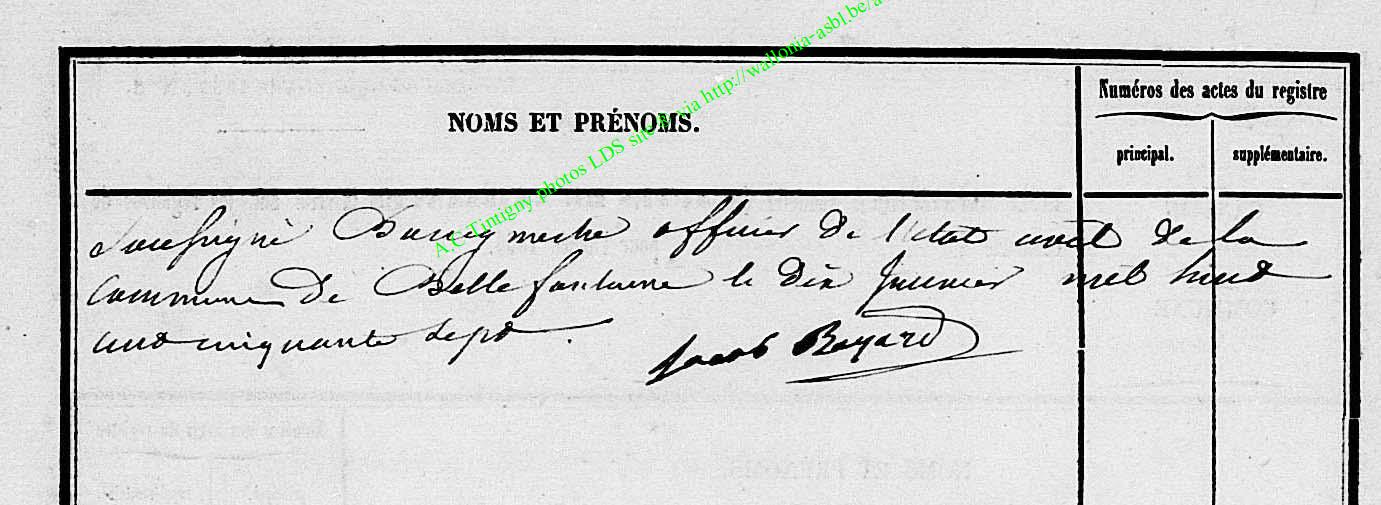 A.C Tintigny photos LDS site & via http://wallonia-asbl.be/a
NOMS ET PRÉNOMS.
Numéros des actes du registre
principal. supplémentaire.
Soussigné Bourgmestre officier de l'état civil de la
Commune de Bellefontaine le dix Janvier mil huit
cent cinquante sept.
Jacob Bayard